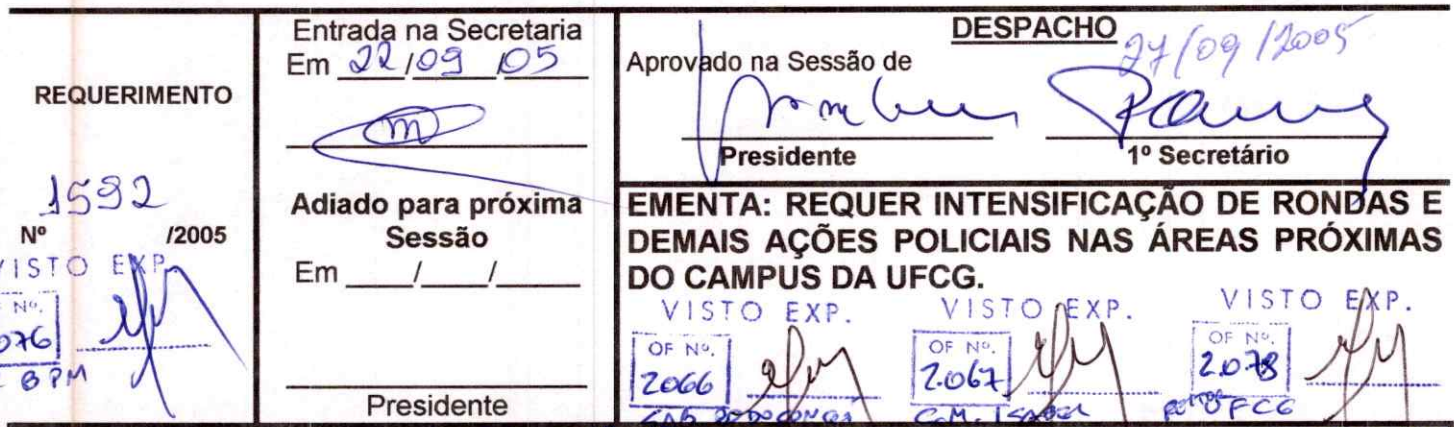 REQUERIMENTO
1592
Nº /2005
VISTO EXP.
Nº.
076
BPM
Entrada na Secretaria
Em 22/09/05
Adiado para próxima
Sessão
Em ____/____/____
Presidente
DESPACHO
27/09/2005
Aprovado na Sessão de
Presidente 1º Secretário
EMENTA: REQUER INTENSIFICAÇÃO DE RONDAS E
DEMAIS AÇÕES POLICIAIS NAS ÁREAS PRÓXIMAS
DO CAMPUS DA UFCG.
VISTO EXP. VISTO EXP. VISTO EXP.
OF Nº. OF Nº. OF Nº.
2066 2067 2078
UFCG